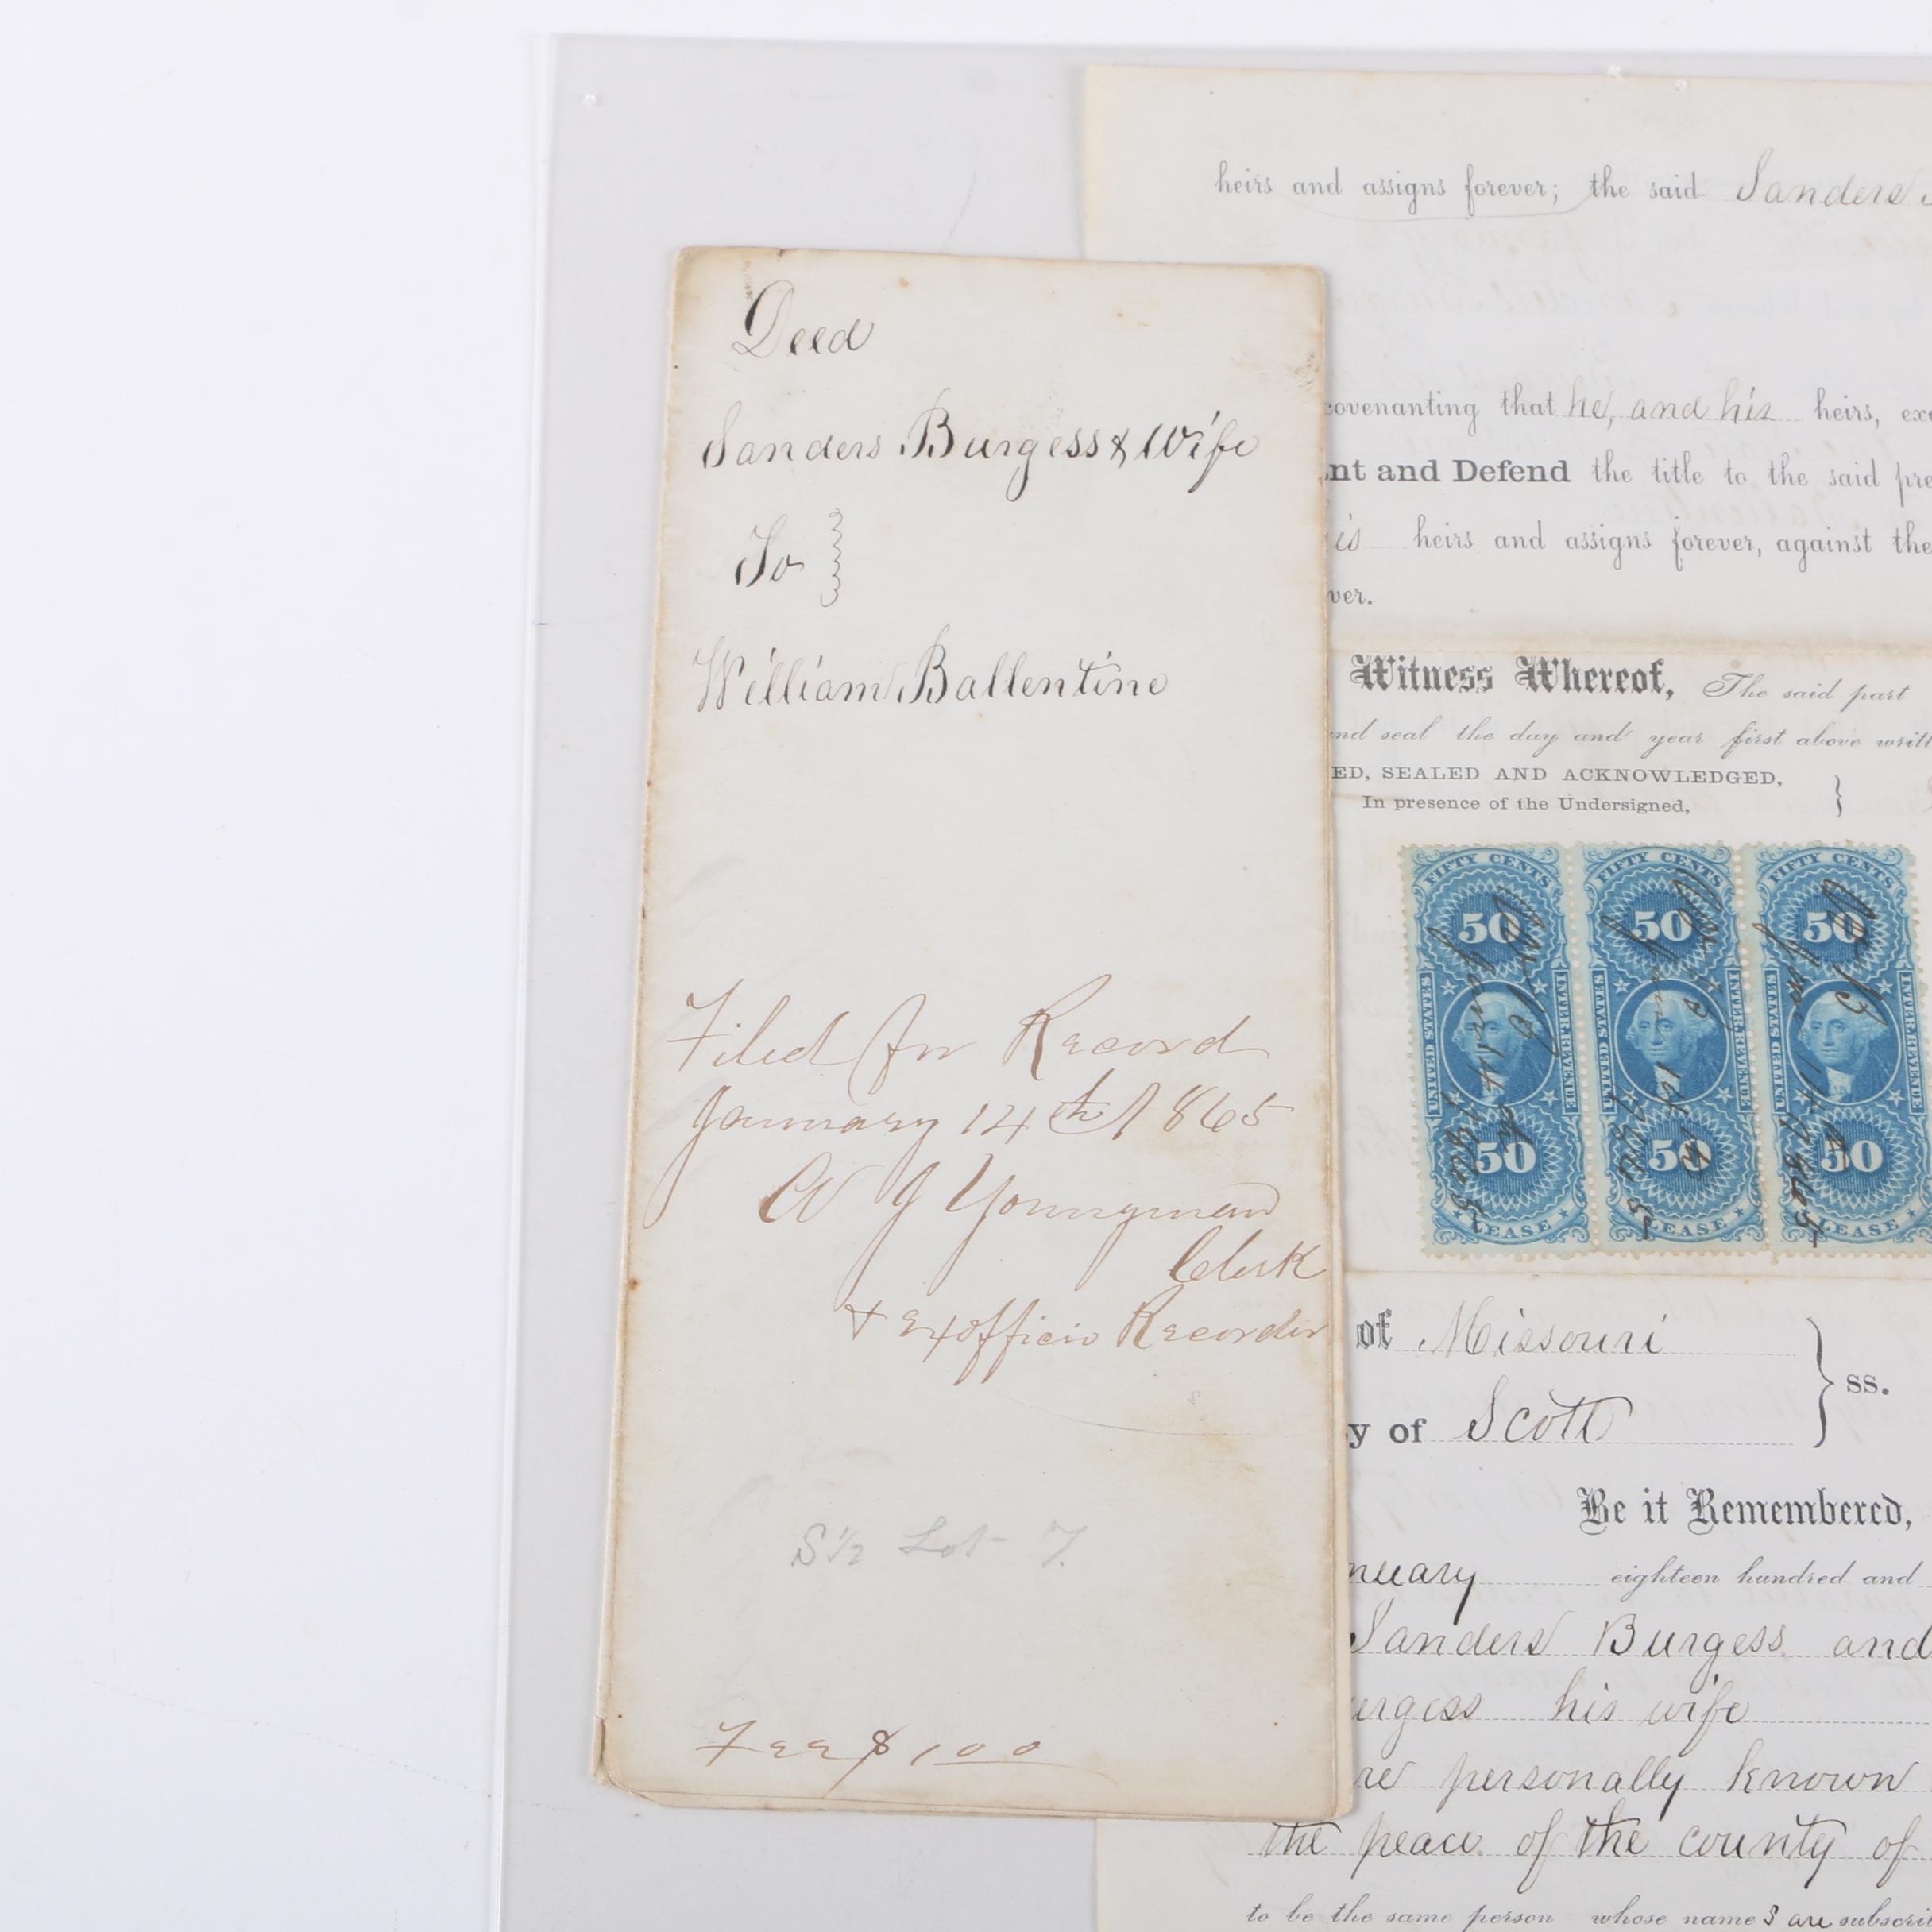 Deed
Sanders Burgess & Wife
To }
William Ballentine
Filed for Record
January 14th 1865
W J Youngman
Clerk
& Exofficio Recorder
S 1/2 Lot 7.
Fee $1 00
heirs and assigns forever; the said Sanders
covenanting that he, and his heirs, exe
nt and Defend the title to the said pre
is heirs and assigns forever, against the
ver.
Witness Whereof, The said part
nd seal the day and year first above writt
ED, SEALED AND ACKNOWLEDGED, }
In presence of the Undersigned,
FIFTY CENTS FIFTY CENTS FIFTY CENTS
50 50 50
UNITED STATES INTER. REVENUE UNITED STATES INTER. REVENUE UNITED STATES INTER. REVENUE
50 50 50
LEASE LEASE LEASE
of Missouri } ss.
y of Scott
Be it Remembered,
nuary eighteen hundred and
Sanders Burgess and
urgess his wife
re personally known
the peace of the county of
to be the same person whose names are subscri